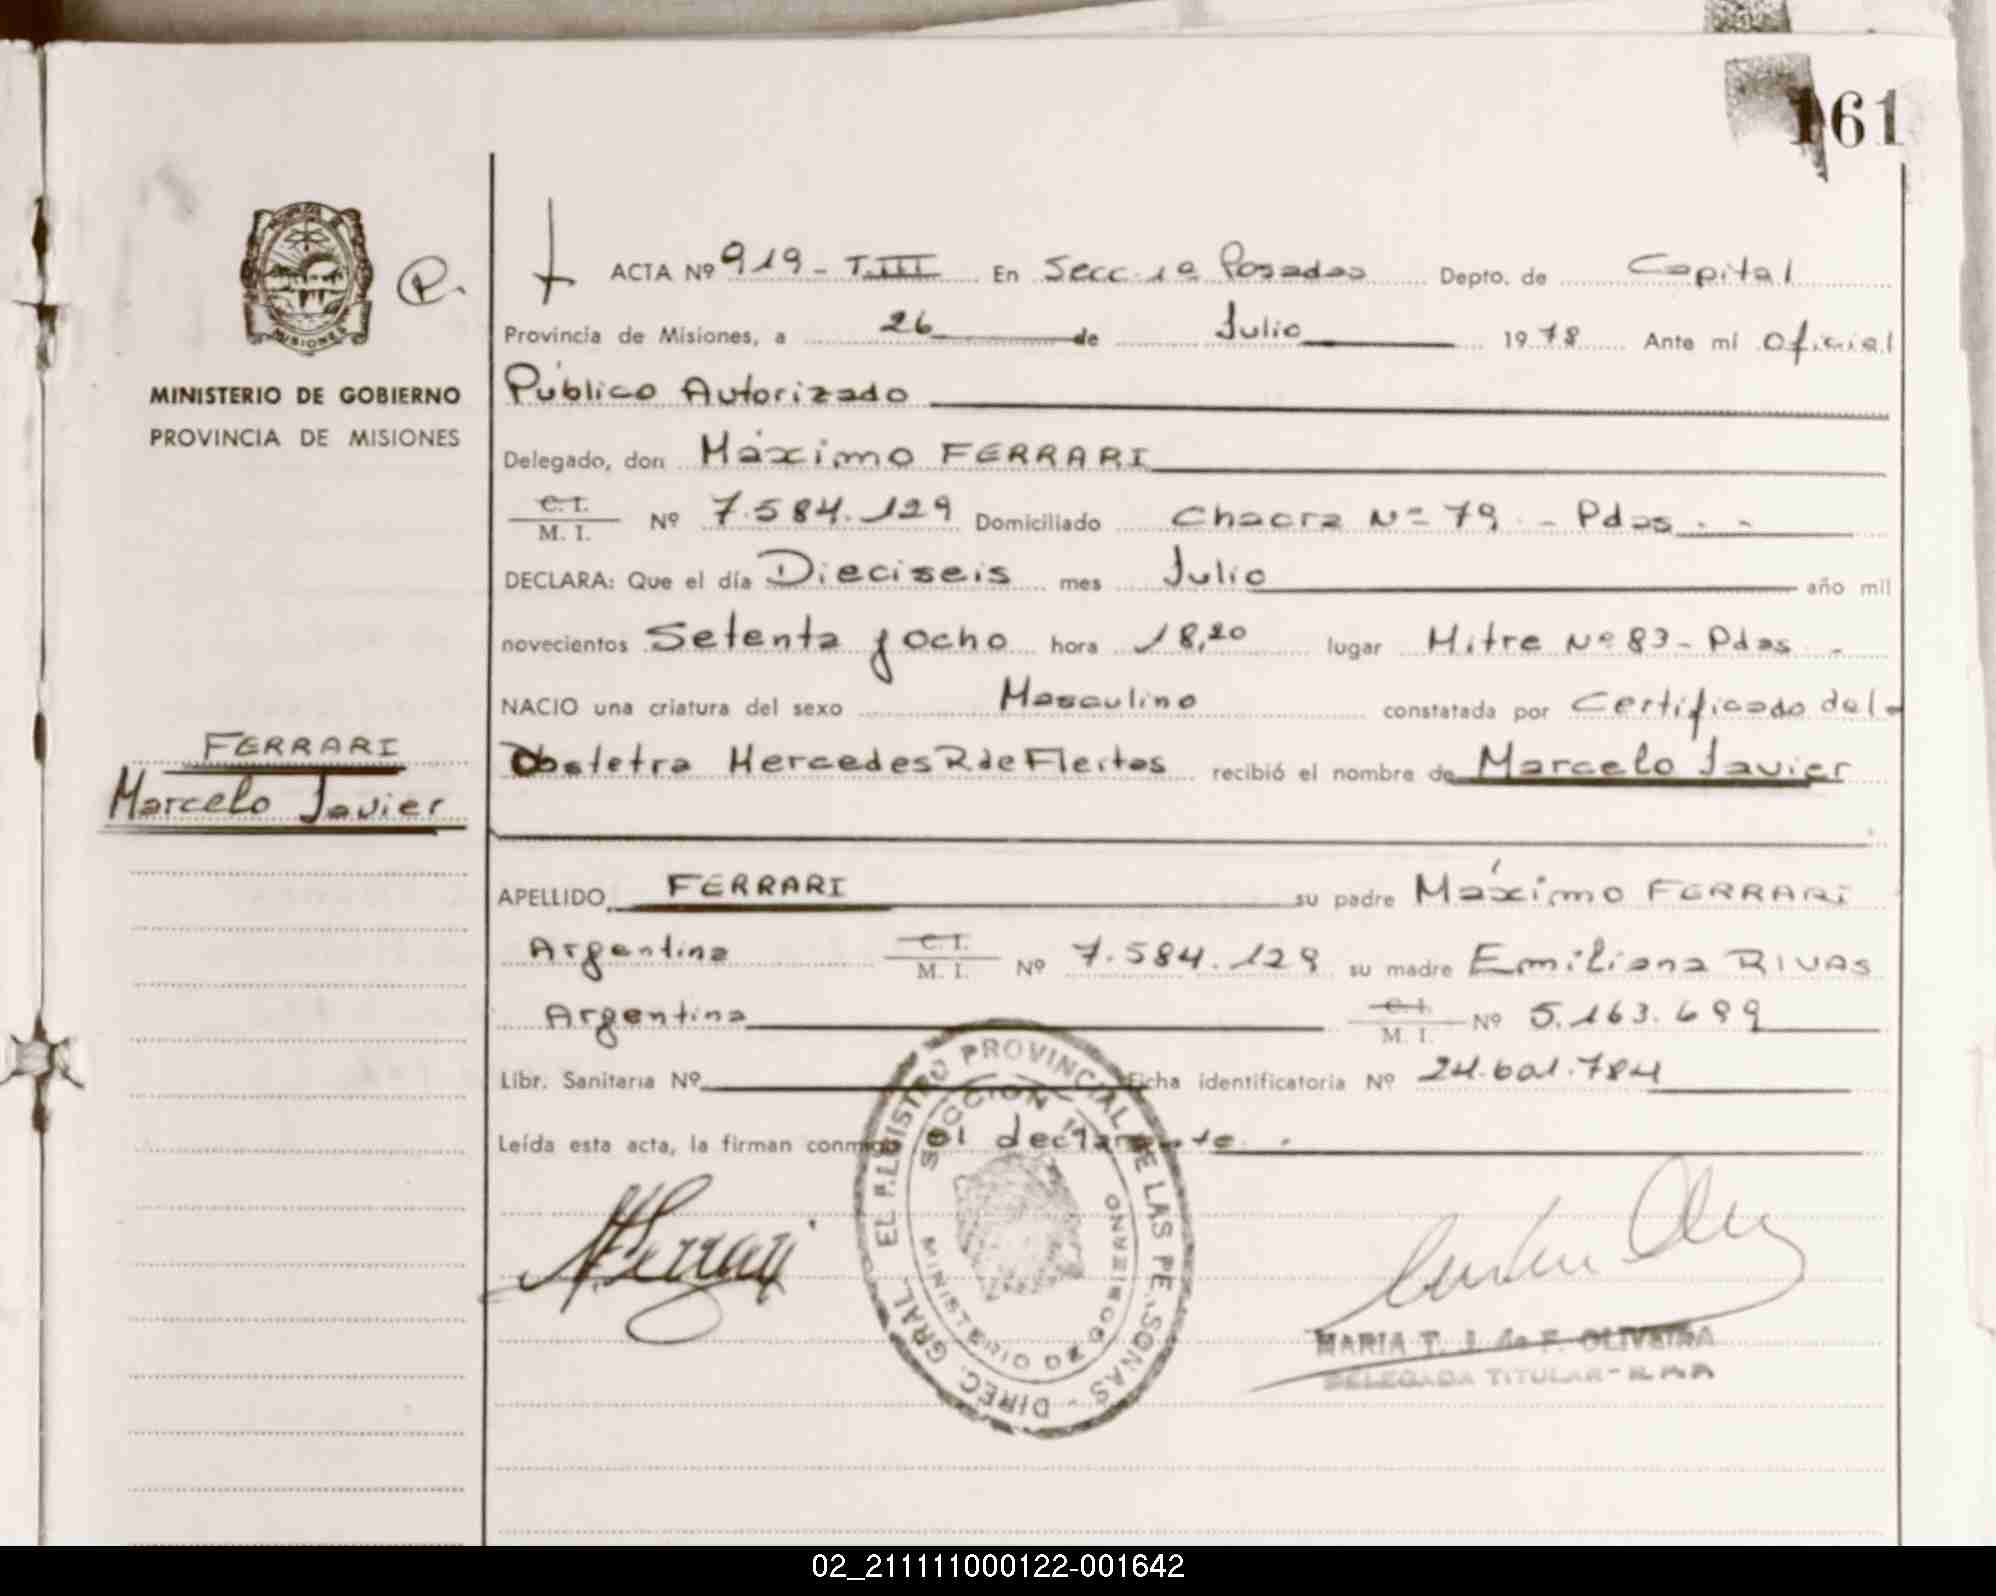 161
ACTA Nº 919 - T.III En Secc. 1ª Posadas Depto. de Capital
P.
Provincia de Misiones, a 26 de Julio 1978 Ante mí Oficial
MINISTERIO DE GOBIERNO
PROVINCIA DE MISIONES
Público Autorizado
Delegado, don Máximo FERRARI
C. I.
M. I. Nº 7.584.129 Domiciliado Chacra Nº 79 - Pdas. -
DECLARA: Que el día Dieciseis mes Julio año mil
novecientos Setenta y Ocho hora 18,20 lugar Mitre Nº 83 - Pdas -
NACIO una criatura del sexo Masculino constatada por Certificado de la
Obstetra Mercedes R de Fleitas recibió el nombre de Marcelo Javier
FERRARI
Marcelo Javier
APELLIDO FERRARI su padre Máximo FERRARI
Argentina C. I.
M. I. Nº 7.584.129 su madre Emiliana RIVAS
Argentina C. I.
M. I. Nº 5.163.699
Libr. Sanitaria Nº Ficha identificatoria Nº 24.601.784
Leída esta acta, la firman conmigo el declarante.
M Ferrari
DIREC. GRAL. DE LAS PERSONAS
REGISTRO PROVINCIAL
SECCION 1ª
MINISTERIO DE GOBIERNO
MARIA T. J. de F. OLIVEIRA
DELEGADA TITULAR - R.P.P.
MISIONES
02_211111000122-001642